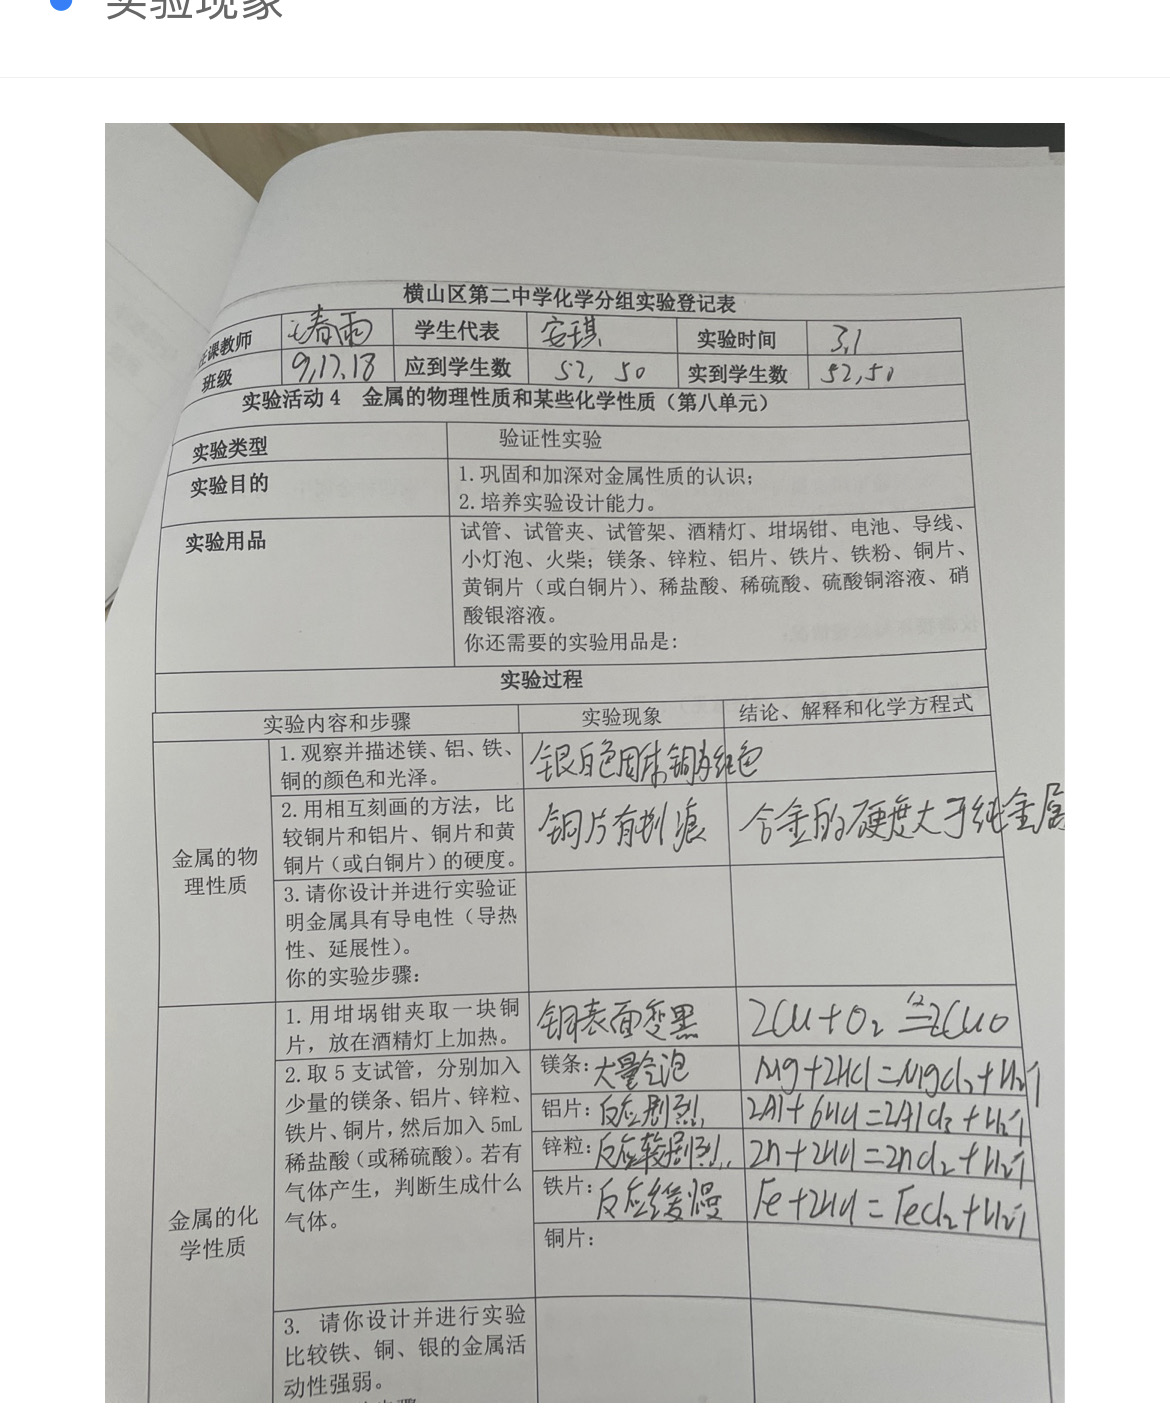 实验现象
横山区第二中学化学分组实验登记表
任课教师 春雨 学生代表 安琪 实验时间 3,1
班级 9,17,18 应到学生数 52, 50 实到学生数 52,50
实验活动4 金属的物理性质和某些化学性质（第八单元）
实验类型 验证性实验
实验目的 1.巩固和加深对金属性质的认识；
2.培养实验设计能力。
实验用品 试管、试管夹、试管架、酒精灯、坩埚钳、电池、导线、
小灯泡、火柴；镁条、锌粒、铝片、铁片、铁粉、铜片、
黄铜片（或白铜片）、稀盐酸、稀硫酸、硫酸铜溶液、硝
酸银溶液。
你还需要的实验用品是：
实验过程
实验内容和步骤 实验现象 结论、解释和化学方程式
金属的物
理性质
1.观察并描述镁、铝、铁、
铜的颜色和光泽。
银白色固体铜为红色
2.用相互刻画的方法，比
较铜片和铝片、铜片和黄
铜片（或白铜片）的硬度。
铜片有划痕
合金的硬度大于纯金属
3.请你设计并进行实验证
明金属具有导电性（导热
性、延展性）。
你的实验步骤：
金属的化
学性质
1.用坩埚钳夹取一块铜
片，放在酒精灯上加热。
铜表面变黑
2Cu+O₂=2CuO
2.取5支试管，分别加入
少量的镁条、铝片、锌粒、
铁片、铜片，然后加入5mL
稀盐酸（或稀硫酸）。若有
气体产生，判断生成什么
气体。
镁条：大量气泡
Mg+2HCl=MgCl₂+H₂↑
铝片：反应剧烈
2Al+6HCl=2AlCl₃+H₂↑
锌粒：反应较剧烈
Zn+2HCl=ZnCl₂+H₂↑
铁片：反应缓慢
Fe+2HCl=FeCl₂+H₂↑
铜片：
3. 请你设计并进行实验
比较铁、铜、银的金属活
动性强弱。